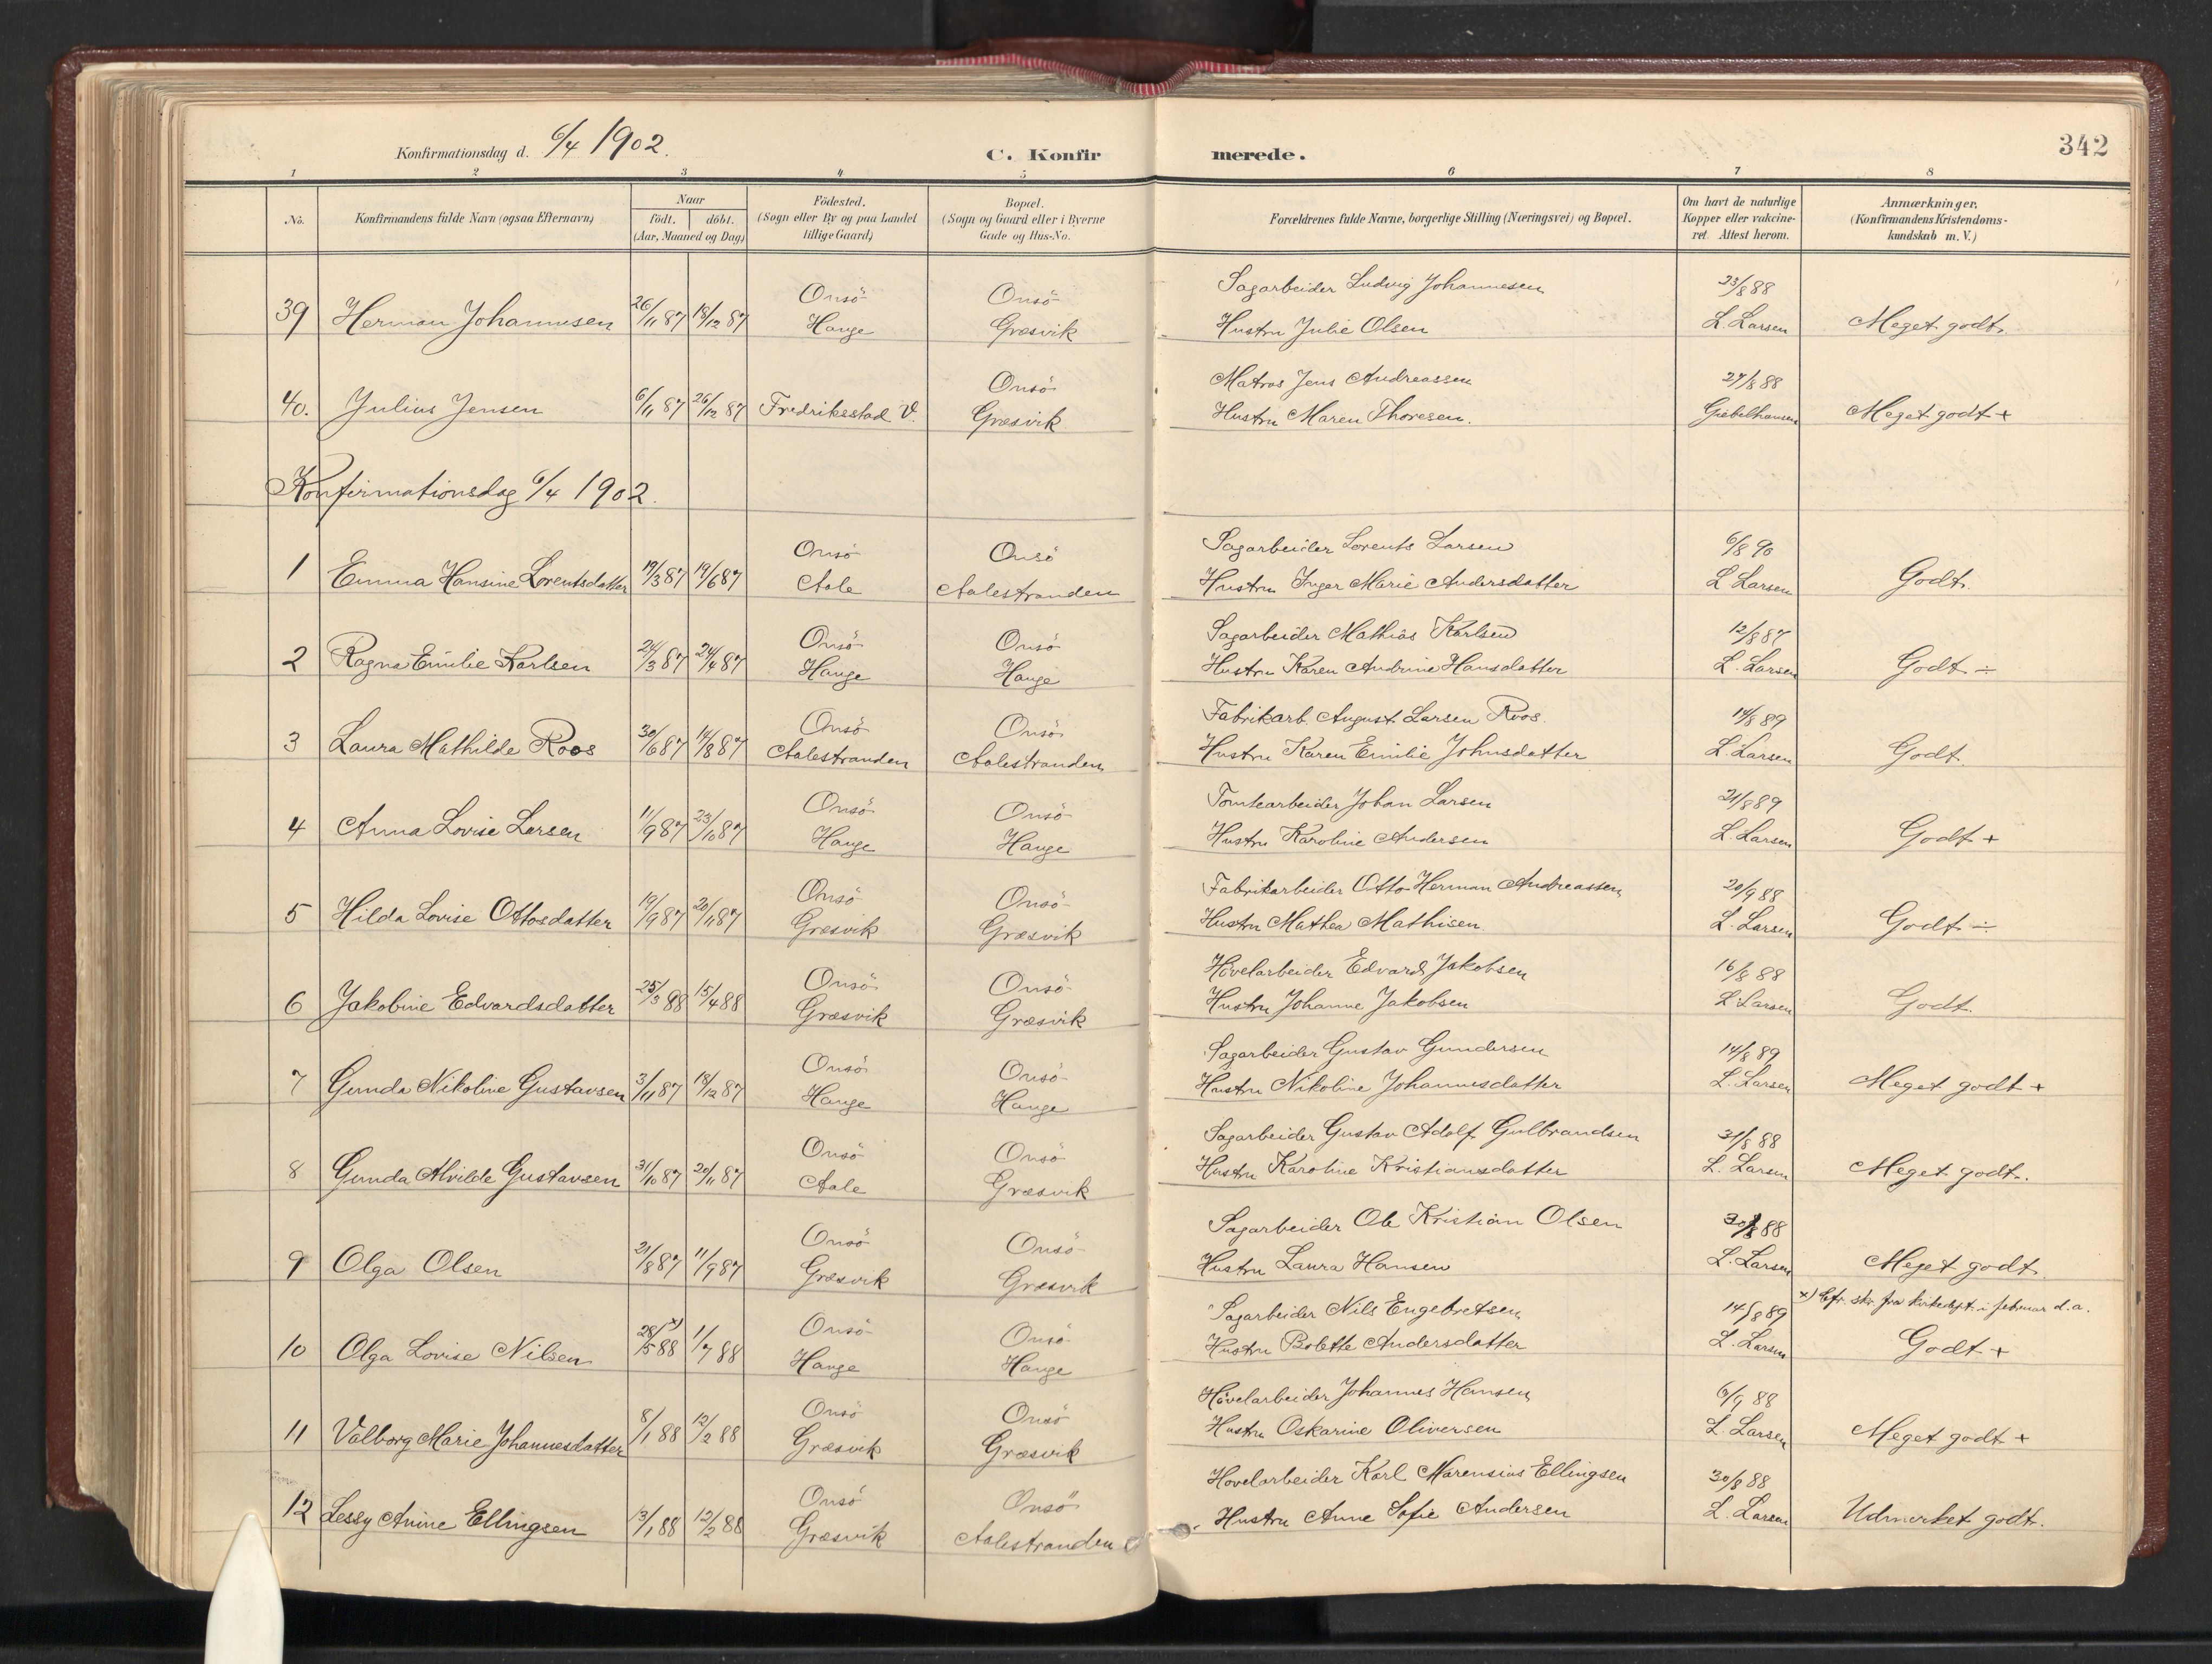 342
Konfirmationsdag d. 6/4 1902.
C. Konfirmerede.
1 2 3 4 5 6 7 8
No.
Konfirmandens fulde Navn (ogsaa Efternavn)
Naar
födt. döbt.
(Aar, Maaned og Dag)
Födested.
(Sogn eller By og paa Landet
tillige Gaard)
Bopæl.
(Sogn og Gaard eller i Byerne
Gade og Hus-No.
Forældrenes fulde Navne, borgerlige Stilling (Næringsvei) og Bopæl.
Om havt de naturlige
Kopper eller vakcine-
ret. Attest herom.
Anmærkninger,
(Konfirmandens Kristendoms-
kundskab m. V.)
Onsö Onsö Sagarbeider Ludvig Johannesen 23/8 88
39 Herman Johannesen 26/11 87 18/12 87 Hauge Græsvik Hustru Julie Olsen L. Larsen Meget godt.
Onsö Matros Jens Andreassen 27/8 88
40. Julius Jensen 6/11 87 26/12 87 Fredriksstad V. Græsvik Hustru Maren Thoresen. Giebelhausen Meget godt +
Konfirmationsdag 6/4 1902.
Onsö Onsö Sagarbeider Lorents Larsen 6/8 90
1 Emma Hansine Lorentsdatter 19/3 87 19/6 87 Aale Aalestranden Hustru Inger Marie Andersdatter L Larsen Godt.
Onsö Onsö Sagarbeider Mathias Karlsen 12/8 87
2 Ragna Emilie Karlsen 24/3 87 24/4 87 Hauge Hauge Hustru Karen Andrine Hansdatter L. Larsen Godt ÷
Onsö Onsö Fabrikarb. August Larsen Roos. 14/8 89
3 Laura Mathilde Roos 30/6 87 14/8 87 Aalestranden Aalestranden Hustru Karen Emilie Johnsdatter L Larsen Godt.
Onsö Onsö Tomtearbeider Johan Larsen 21/8 89
4 Anna Lovise Larsen 11/9 87 23/10 87 Hauge Hauge Hustru Karoline Andersen L. Larsen Godt +
Onsö Onsö Fabrikarbeider Otto Herman Andreassen 20/9 88
5 Hilda Lovise Ottosdatter 19/9 87 20/11 87 Græsvik Græsvik Hustru Mathea Mathisen L. Larsen Godt ÷
Onsö Onsö Hövelarbeider Edvard Jakobsen 16/8 88
6 Jakobine Edvardsdatter 25/3 88 15/4 88 Græsvik Græsvik Hustru Johanne Jakobsen L. Larsen Godt.
Onsö Onsö Sagarbeider Gustav Gundersen 14/8 89
7 Gunda Nikoline Gustavsen 3/11 87 18/12 87 Hauge Hauge Hustru Nikoline Johannesdatter L. Larsen Meget godt +
Onsö Onsö Sagarbeider Gustav Adolf Gulbrandsen 31/8 88
8 Gunda Alvilde Gustavsen 31/10 87 20/11 87 Aale Græsvik Hustru Karoline Kristiansdatter L. Larsen Meget godt.
Onsö Onsö Sagarbeider Ole Kristian Olsen 30/8 88
9 Olga Olsen 21/8 87 11/9 87 Græsvik Græsvik Hustru Laura Hansen L. Larsen Meget godt.
Onsö Onsö Sagarbeider Nils Engebretsen 14/8 89 x) Cfr. skr. fra kirkedept. i februar d.a.
10 Olga Lovise Nilsen 28/5 88 x) 1/7 88 Hauge Hauge Hustru Bolette Andersdatter L. Larsen Godt +
Onsö Onsö Hövelarbeider Johannes Hansen 6/9 88
11 Valborg Marie Johannesdatter 8/1 88 12/2 88 Græsvik Græsvik Hustru Oskarine Oliversen L. Larsen Meget godt +
Onsö Onsö Hovelarbeider Karl Marensius Ellingsen 30/8 88
12 Lessy Anine Ellingsen 13/1 88 12/2 88 Græsvik Aalestranden Hustru Anne Sofie Andersen L. Larsen Udmerket godt.